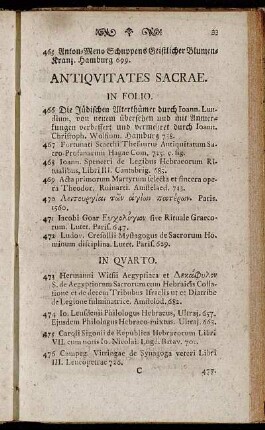 33
465 Anton-Meno Schuppens Geistlicher Blumen-
Kranz. Hamburg 699.
ANTIQVITATES SACRAE.
IN FOLIO.
466 Die Jüdischen Alterthümer durch Ioann. Lun-
dium, von neuem übersehen und mit Anmer-
kungen verbessert und vermehret durch Ioann.
Christoph. Wolfium. Hamburg 738.
467 Fortunati Scacchi Thesaurus Antiquitatum Sa-
cro-Profanarum Hagae Com. 725. c. fig.
468 Ioann. Spenceri de Legibus Hebraeorum Ri-
tualibus, Libri III. Cantabrig. 685.
469 Acta primorum Martyrum selecta et sincera opera
Theodor. Ruinarti. Amstelaed. 713.
470 Λειτουργιαι των αγιων πατερων. Paris.
1560.
471 Iacobi Goar Ευχολογιον sive Rituale Graeco-
rum. Lutet. Paris. 647.
472 Ludov. Cresollii Mystagogus de Sacrorum Ho-
minum disciplina. Lutet. Paris. 629.
IN QVARTO.
473 Hermanni Witsii Aegyptiaca et Δεκαφυλον
S. de Aegyptiorum Sacrorum cum Hebraicis Colla-
tione et de decem Tribubus Israelis ut et Diatribe
de Legione fulminatrice. Amstelod. 683.
474 Io. Leusdenii Philologus Hebraeus, Ultraj. 657.
Ejusdem Philologus Hebraeo-mixtus. Ultraj. 663.
475 Caroli Sigonii de Republica Hebraeorum Libri
VII. cum notis Io. Nicolai. Lugd. Batav. 701.
476 Campeg. Vitringae de Synagoga vetere Libri
III. Leucopetrae 726.
C
477.